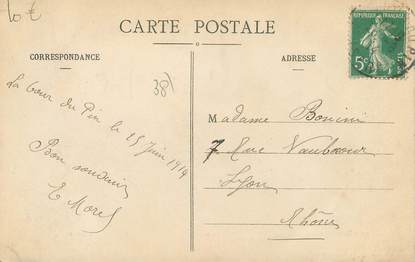 10 €
CARTE POSTALE
CORRESPONDANCE
ADRESSE
RÉPUBLIQUE FRANÇAISE
5c
38
La Tour du Pin le 25 Juin 1914
Bon souvenir
E Morel
Madame
7 Rue Vaubecour
Lyon
Rhône